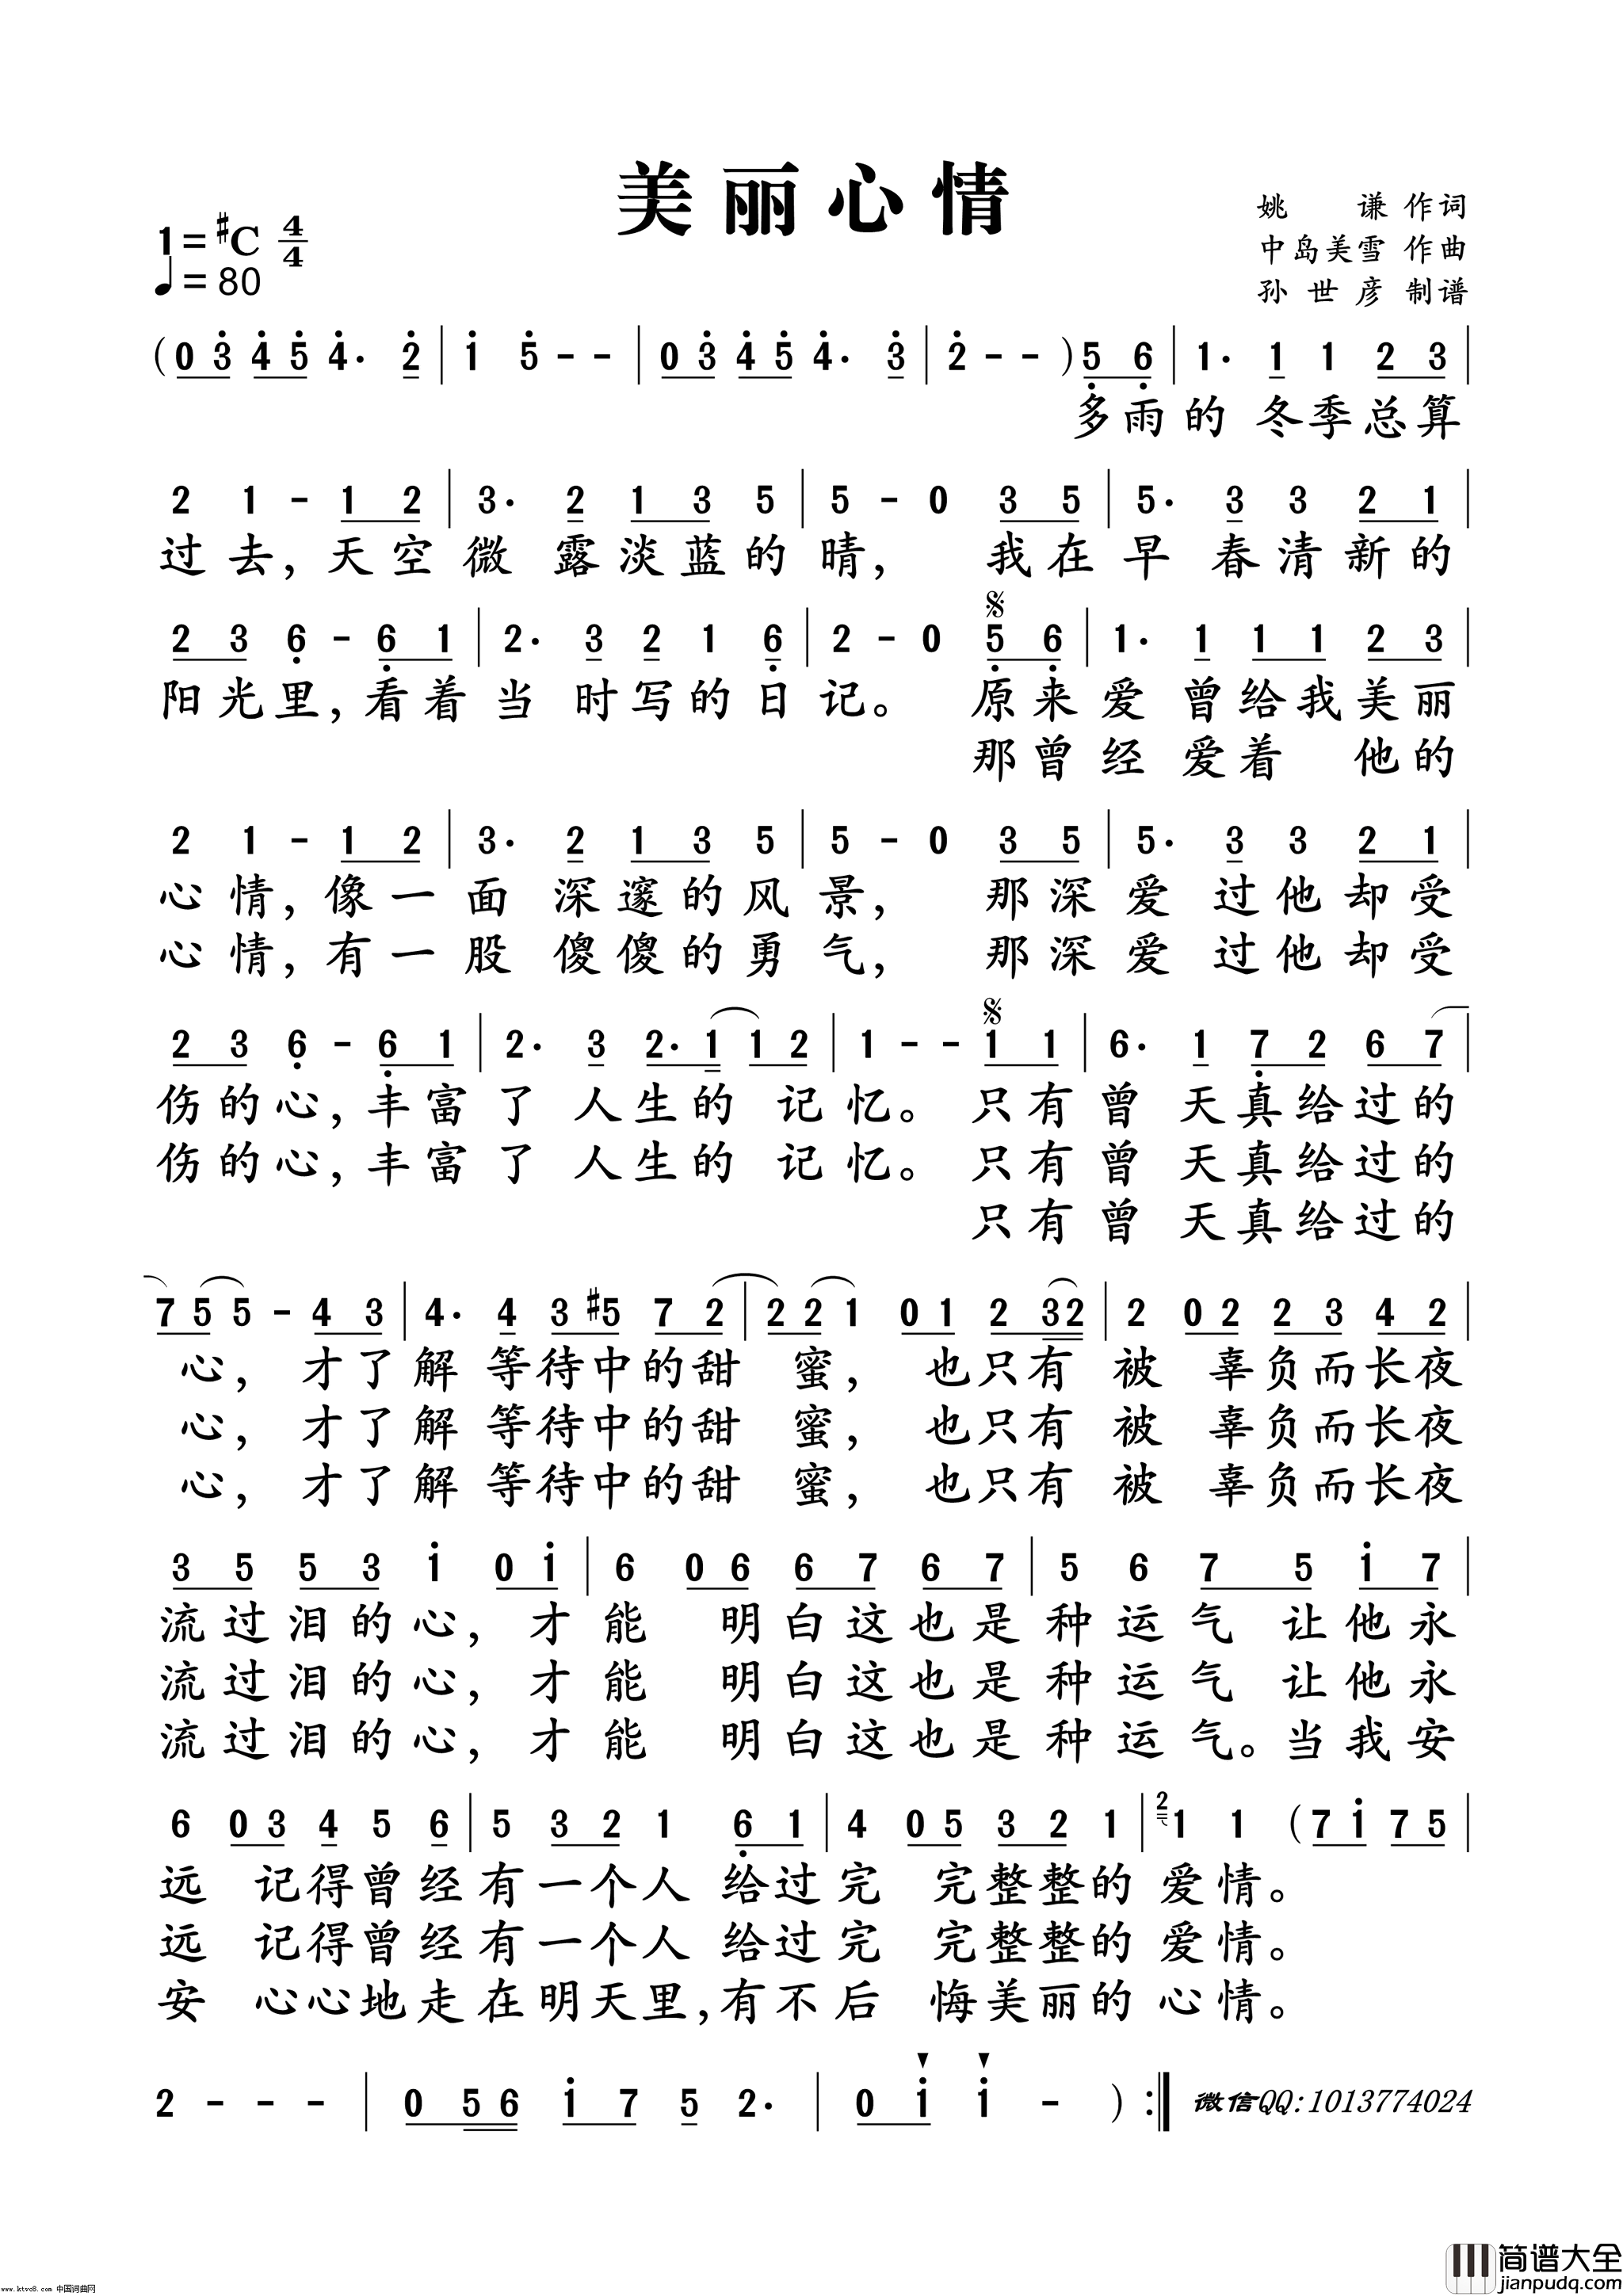 美丽心情
1=#C 4/4
♩=80
姚 谦 作词
中岛美雪 作曲
孙世彦 制谱
(0 3 4 5 4. 2 | 1 5 - - | 0 3 4 5 4. 3 | 2 - - )5 6 | 1. 1 1 2 3 |
多雨的 冬季总算
2 1 - 1 2 | 3. 2 1 3 5 | 5 - 0 3 5 | 5. 3 3 2 1 |
过去,天空微露淡蓝的晴, 我在早春清新的
2 3 6 - 6 1 | 2. 3 2 1 6 | 2 - 0 5 6 | 1. 1 1 1 2 3 |
阳光里,看着当时写的日记。 原来爱曾给我美丽
那曾经爱着 他的
2 1 - 1 2 | 3. 2 1 3 5 | 5 - 0 3 5 | 5. 3 3 2 1 |
心情,像一面深邃的风景, 那深爱过他却受
心情,有一股傻傻的勇气, 那深爱过他却受
2 3 6 - 6 1 | 2. 3 2. 1 1 2 | 1 - - 1 1 | 6. 1 7 2 6 7 |
伤的心,丰富了人生的 记忆。只有曾天真给过的
伤的心,丰富了人生的 记忆。只有曾天真给过的
只有曾天真给过的
7 5 5 - 4 3 | 4. 4 3 #5 7 2 | 2 2 1 0 1 2 3 2 | 2 0 2 2 3 4 2 |
心, 才了解等待中的甜 蜜, 也只有被 辜负而长夜
心, 才了解等待中的甜 蜜, 也只有被 辜负而长夜
心, 才了解等待中的甜 蜜, 也只有被 辜负而长夜
3 5 5 3 1 0 1 | 6 0 6 6 7 6 7 | 5 6 7 5 1 7 |
流过泪的心,才能 明白这也是种运气 让他永
流过泪的心,才能 明白这也是种运气 让他永
流过泪的心,才能 明白这也是种运气。当我安
6 0 3 4 5 6 | 5 3 2 1 6 1 | 4 0 5 3 2 1 | 2 1 1 (7 1 7 5 |
远 记得曾经有一个人 给过完 完整整的爱情。
远 记得曾经有一个人 给过完 完整整的爱情。
安 心心地走在明天里,有不后 悔美丽的心情。
2 - - - | 0 5 6 1 7 5 2. | 0 1 1 - ) :|
微信QQ:1013774024
www.ktvc8.com 中国词曲网
简谱大全
jianpudq.com